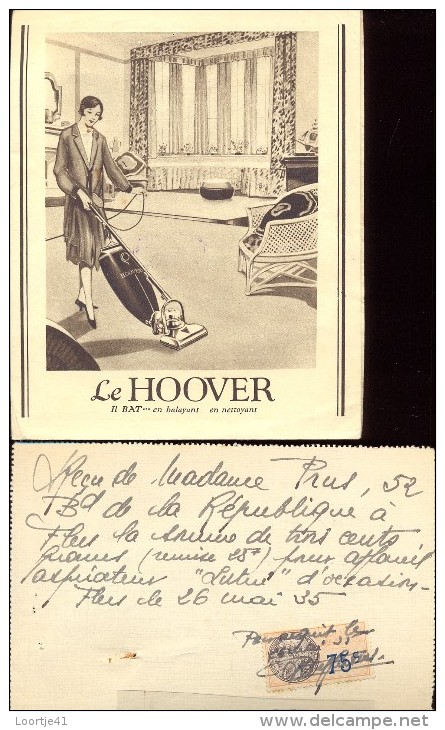 HOOVER
Le HOOVER
Il BAT... en balayant en nettoyant
Reçu de Madame Prus, 52
Bd de la République à
Flers la somme de trois cents
francs (remise 25f) pour appareil
aspirateur "Lutin" d'occasion
Flers le 26 mai 35
Pour acquit le
75
Loortje41